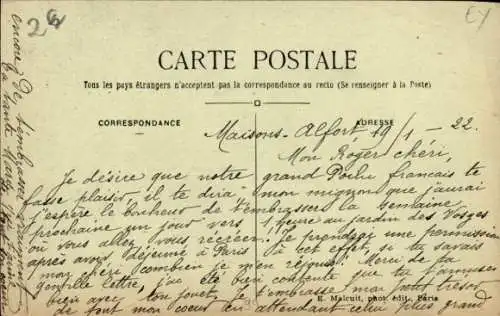 28
EY
CARTE POSTALE
Tous les pays étrangers n'acceptent pas la correspondance au recto (Se renseigner à la Poste)
CORRESPONDANCE
ADRESSE
Maisons-Alfort 19/1-22.
Mon Roger chéri,
Je désire que notre grand Poilu français te
fasse plaisir il te dira mon mignon que j'aurai
j'espère le bonheur de t'embrasser la semaine
prochaine un jour vers 1 heure au jardin des Vosges
où vous allez vous recréer. Je prendrai une permission
après avoir déjeuné à Paris à cet effet, si tu savais
mon chéri combien je m'en réjouis! Merci de ta
gentille lettre, j'ai été bien contente que tu t'amuses
bien avec ton jouet. Je t'embrasse mon petit trésor
de tout mon cœur en attendant celui plus grand
encore de t'embrasser
ta tante
E. Malcuit, phot. édit., Paris